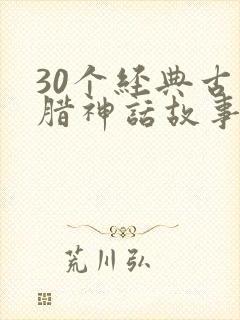 30个经典古
腊神話故事
荒川弘